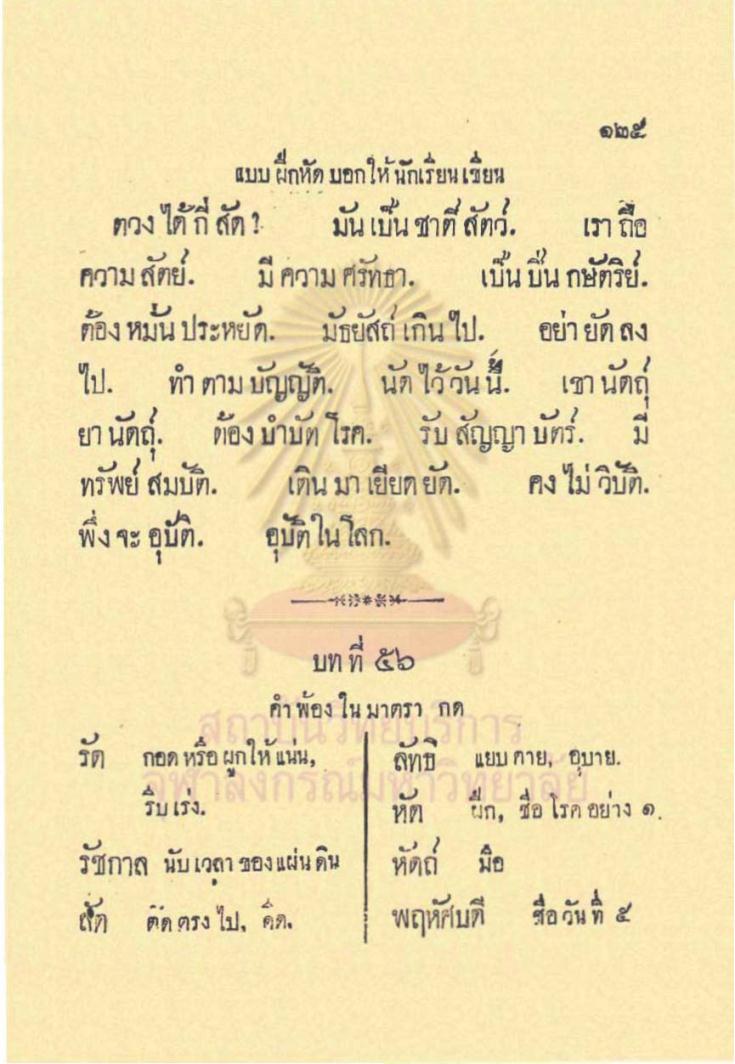 ๑๒๕
แบบ ฝึกหัด บอกให้ นักเรียน เขียน
ตวง ได้ กี่ สัด ? มัน เป็น ชาติ สัตว์. เรา ถือ
ความ สัตย์. มี ความ ศรัทธา. เป็น ปิ่น กษัตริย์.
ต้อง หมั่น ประหยัด. มัธยัสถ์ เกิน ไป. อย่า ยัด ลง
ไป. ทำ ตาม บัญญัติ. นัด ไว้ วัน นี้. เขา นัดถุ์
ยา นัดถุ์. ต้อง บำบัด โรค. รับ สัญญา บัตร์. มี
ทรัพย์ สมบัติ. เดิน มา เยียด ยัด. คง ไม่ วิบัติ.
พึ่ง จะ อุบัติ. อุบัติ ใน โลก.
บท ที่ ๕๖
คำ พ้อง ใน มาตรา กด
รัด กอด หรือ ผูก ให้ แน่น,
รีบ เร่ง.
รัชกาล นับ เวลา ของ แผ่น ดิน
ลัด ตัด ตรง ไป,
ลัทธิ แยบ คาย, อุบาย.
หัด ฝึก, ชื่อ โรค อย่าง ๑.
หัตถ์ มือ
พฤหัศบดี ชื่อ วัน ที่ ๕
สถาบันวิทยบริการ
จุฬาลงกรณ์มหาวิทยาลัย